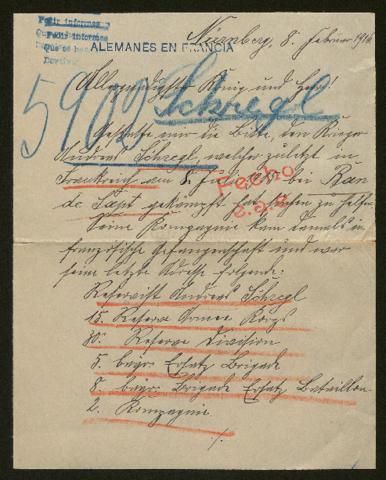 Pedir informes
Pedir informes
Que se
ALEMANES EN FRANCIA
Nürnberg, 8. Februar 1916
Allergnädigster König und Herr!
59 Schregl
Gestatte mir die Bitte, den Krieger
Andreas Schregl, welcher zuletzt in
Frankreich am 8. bei Ban
de Sapt gekämpft hat, zu helfen
Seine Kompagnie kam damals in
französische Gefangenschaft und war
seine letzte Adresse folgende:
Fecho
Reservist Andreas Schregl
15. Reserve Armee Korps
30. Reserve Division
5. bayr. Ersatz Brigade
8. bayr. Brigade Ersatz Bataillon
2. Kompagnie
./.